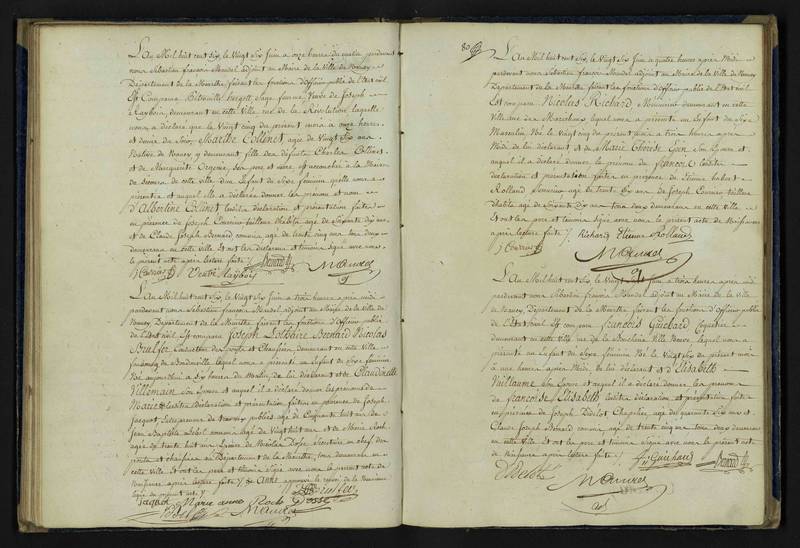 L'An Mil huit cent six, le Vingt six Juin a onze heures du matin pardevant
nous Sebastien francois Mandel adjoint au Maire de la Ville de Nancy
Departement de la Meurthe faisant les fonctions d'Officier public de l'Etat civil
Est Comparue Sage femme Veuve de Joseph
demeurant en cette Ville rue de la Revolution laquelle
nous a declaré que le Vingt cinq du present mois a onze heures
et demie du soir, Marthe Collinet agée de Vingt six ans
Native de Nancy y demeurant fille des défunts Charles Collinet
et de Marguerite ses pere et mere est accouchée a la Maison
de Secours de cette ville d'un Enfant du Sexe feminin qu'elle nous a
présenté et auquel elle a declaré donner les prénoms et nom
d'Albertine Collinet lesdites déclaration et présentation faites
en présence de Joseph Courrier tailleur d'habits agé de soixante dix ans
et de Claude Joseph Bernard commis agé de trente cinq ans tous deux
demeurans en cette ville Et ont les déclarans et témoins signé avec nous
le présent acte après lecture faite
Courrier Bernard Mandel
L'An Mil huit cent six, le Vingt six Juin a trois heures après midi
pardevant nous Sebastien francois Mandel adjoint au Maire de la Ville
de Nancy, Departement de la Meurthe faisant les fonctions d'Officier public
de l'Etat civil Est comparu Joseph Bernard Nicolas
Conducteur des ponts et Chaussées, demeurant en cette ville
faubourg de lequel nous a presenté un Enfant du Sexe feminin
Né aujourd'hui a Six heures du Matin, de lui declarant et de Claudinette
Villemain Son Epouse et auquel il a declaré donner les prénoms de
Marie lesdites déclaration et présentation faites en présence de Joseph
Jacquot, Entrepreneur de travaux publics agé de Cinquante huit ans de
Jean Baptiste commis agé de Vingt huit ans et de Marie Roch
agée de trente huit ans Epouse de Nicolas Dosse Secretaire en chef des
ponts et chaussées du Departement de la Meurthe, tous demeurans en
cette Ville Et ont les pere et témoins signé avec nous le present acte de
Naissance après lecture faite de Anne approuvé le renvoi
Jacquot Marie anne Roch Dosse
Mandel
80
L'An Mil huit cent six, le Vingt six Juin a quatre heures après Midi
pardevant nous Sebastien francois Mandel adjoint au Maire de la Ville de Nancy
Departement de la Meurthe faisant les fonctions d'Officier public de l'Etat civil
Est comparu Nicolas Richard, Menuisier demeurant en cette
Ville rue des lequel nous a présenté un Enfant du Sexe
Masculin Né le Vingt cinq du present mois a trois heures après
Midi de lui déclarant et de Marie Thérese Son Epouse et
auquel il a déclaré donner le prénom de francois lesdites
déclaration et présentation faites en présence de Etienne
Rolland agé de trente six ans de Joseph Courrier tailleur
d'habits agé de soixante dix ans tous deux demeurans en cette Ville
Et ont les pere et témoins signé avec nous le présent acte de Naissance
après lecture faite Richard Etienne Rolland
Courrier
Mandel
L'An Mil huit cent six, le Vingt six Juin a trois heures après midi
pardevant nous Sebastien francois Mandel adjoint au Maire de la Ville
de Nancy, Departement de la Meurthe faisant les fonctions d'Officier public
de l'Etat civil Est comparu francois Guichard
demeurant en cette ville rue de la Ville Neuve, lequel nous a
présenté un Enfant du Sexe feminin Né le Vingt six du présent mois
a une heure après Midi, de lui déclarant et d'Elisabeth
Vuillaume Son Epouse et auquel il a déclaré donner les prénoms
de francoise Elisabeth lesdites déclaration et présentation faites
en présence de Joseph Didelot Chapelier, agé de quarante six ans et
Claude Joseph Bernard commis, agé de trente cinq ans tous deux demeurans
en cette Ville Et ont les pere et témoins Signé avec nous le present acte
de Naissance après lecture faite fs Guichard Bernard
Didelot
Mandel